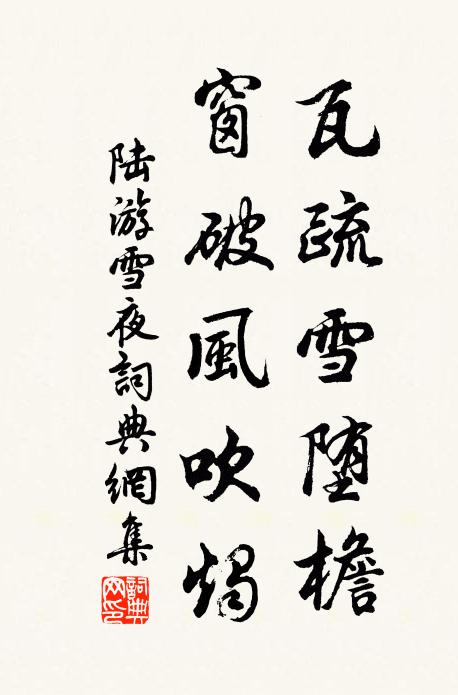 瓦疏雪堕檐
窗破風吹燭
陆游雪夜詞典網集
詞典网印